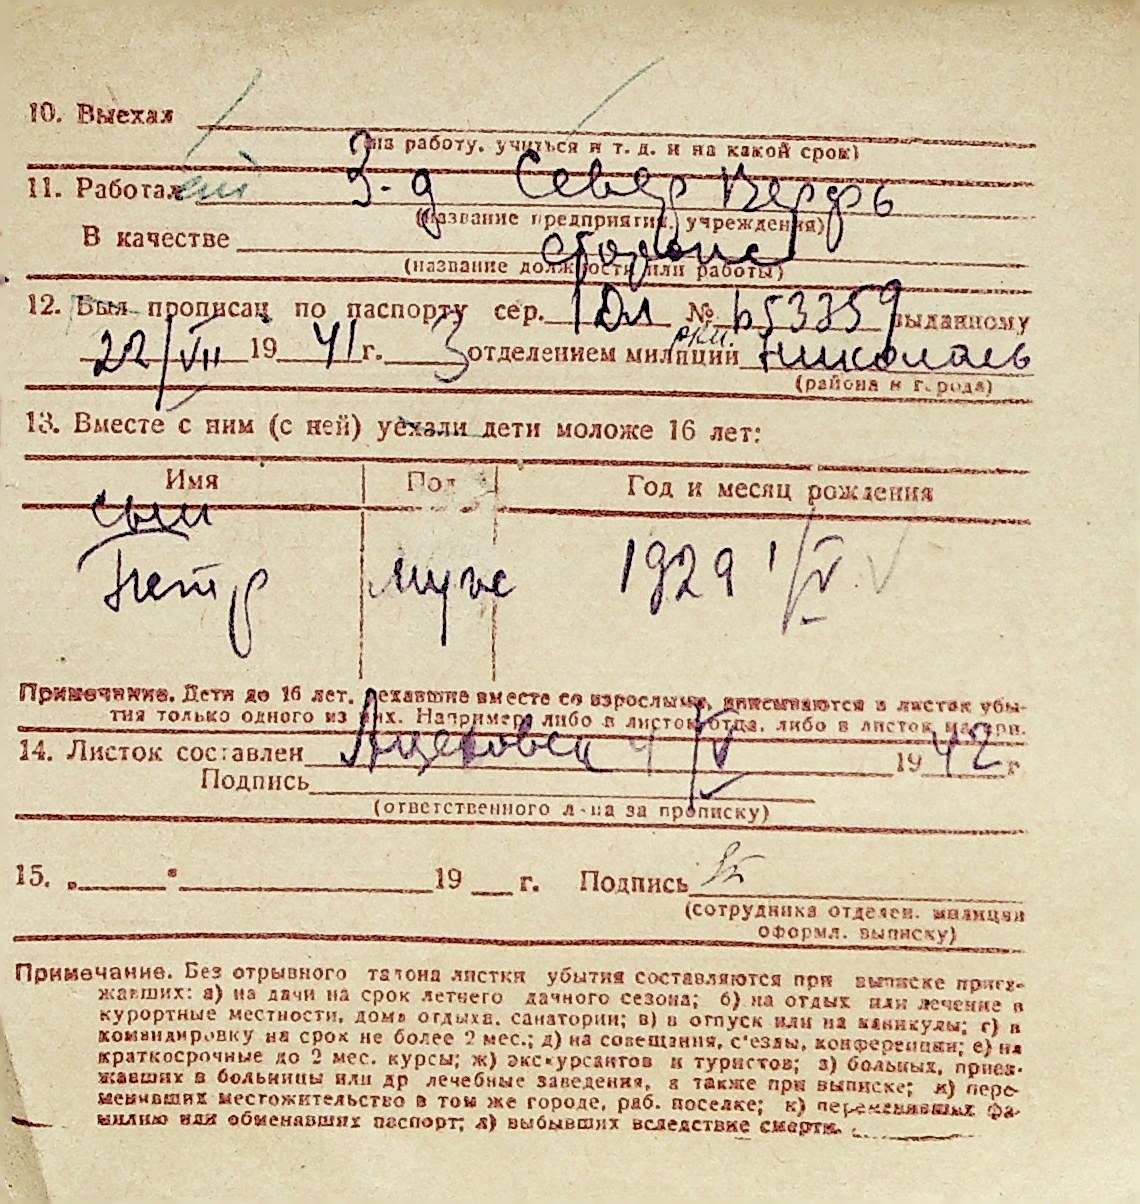 10. Выехал
(на работу, учиться и т. д. и на какой срок)
11. Работал З-д Север Верфь
(название предприятия, учреждения)
В качестве
(название должности или работы)
12. Был прописан по паспорту сер. № 653359 выданному
22/VII 1941 г. 3 отделением милиции РКМ. Николаев
(района и города)
13. Вместе с ним (с ней) уехали дети моложе 16 лет:
Имя Пол Год и месяц рождения
сын
Петр муж 1929 1/V
Примечание. Дети до 16 лет, уехавшие вместе со взрослыми, вписываются в листок убы-
тия только одного из них. Например либо в листок отца, либо в листок матери.
14. Листок составлен 4/V 1942 г
Подпись
(ответственного л-ца за прописку)
15. „ " 19 г. Подпись
(сотрудника отделен. милиции
оформл. выписку)
Примечание. Без отрывного талона листки убытия составляются при выписке приез-
жавших: а) на дачи на срок летнего дачного сезона; б) на отдых или лечение в
курортные местности, дома отдыха, санатории; в) в отпуск или на каникулы; г) в
командировку на срок не более 2 мес.; д) на совещания, с'езды, конференции; е) на
краткосрочные до 2 мес. курсы; ж) экскурсантов и туристов; з) больных, приез-
жавших в больницы или др лечебные заведения, а также при выписке; и) пере-
менивших местожительство в том же городе, раб. поселке; к) переменявших фа-
милию или обменявших паспорт; л) выбывших вследствие смерти.